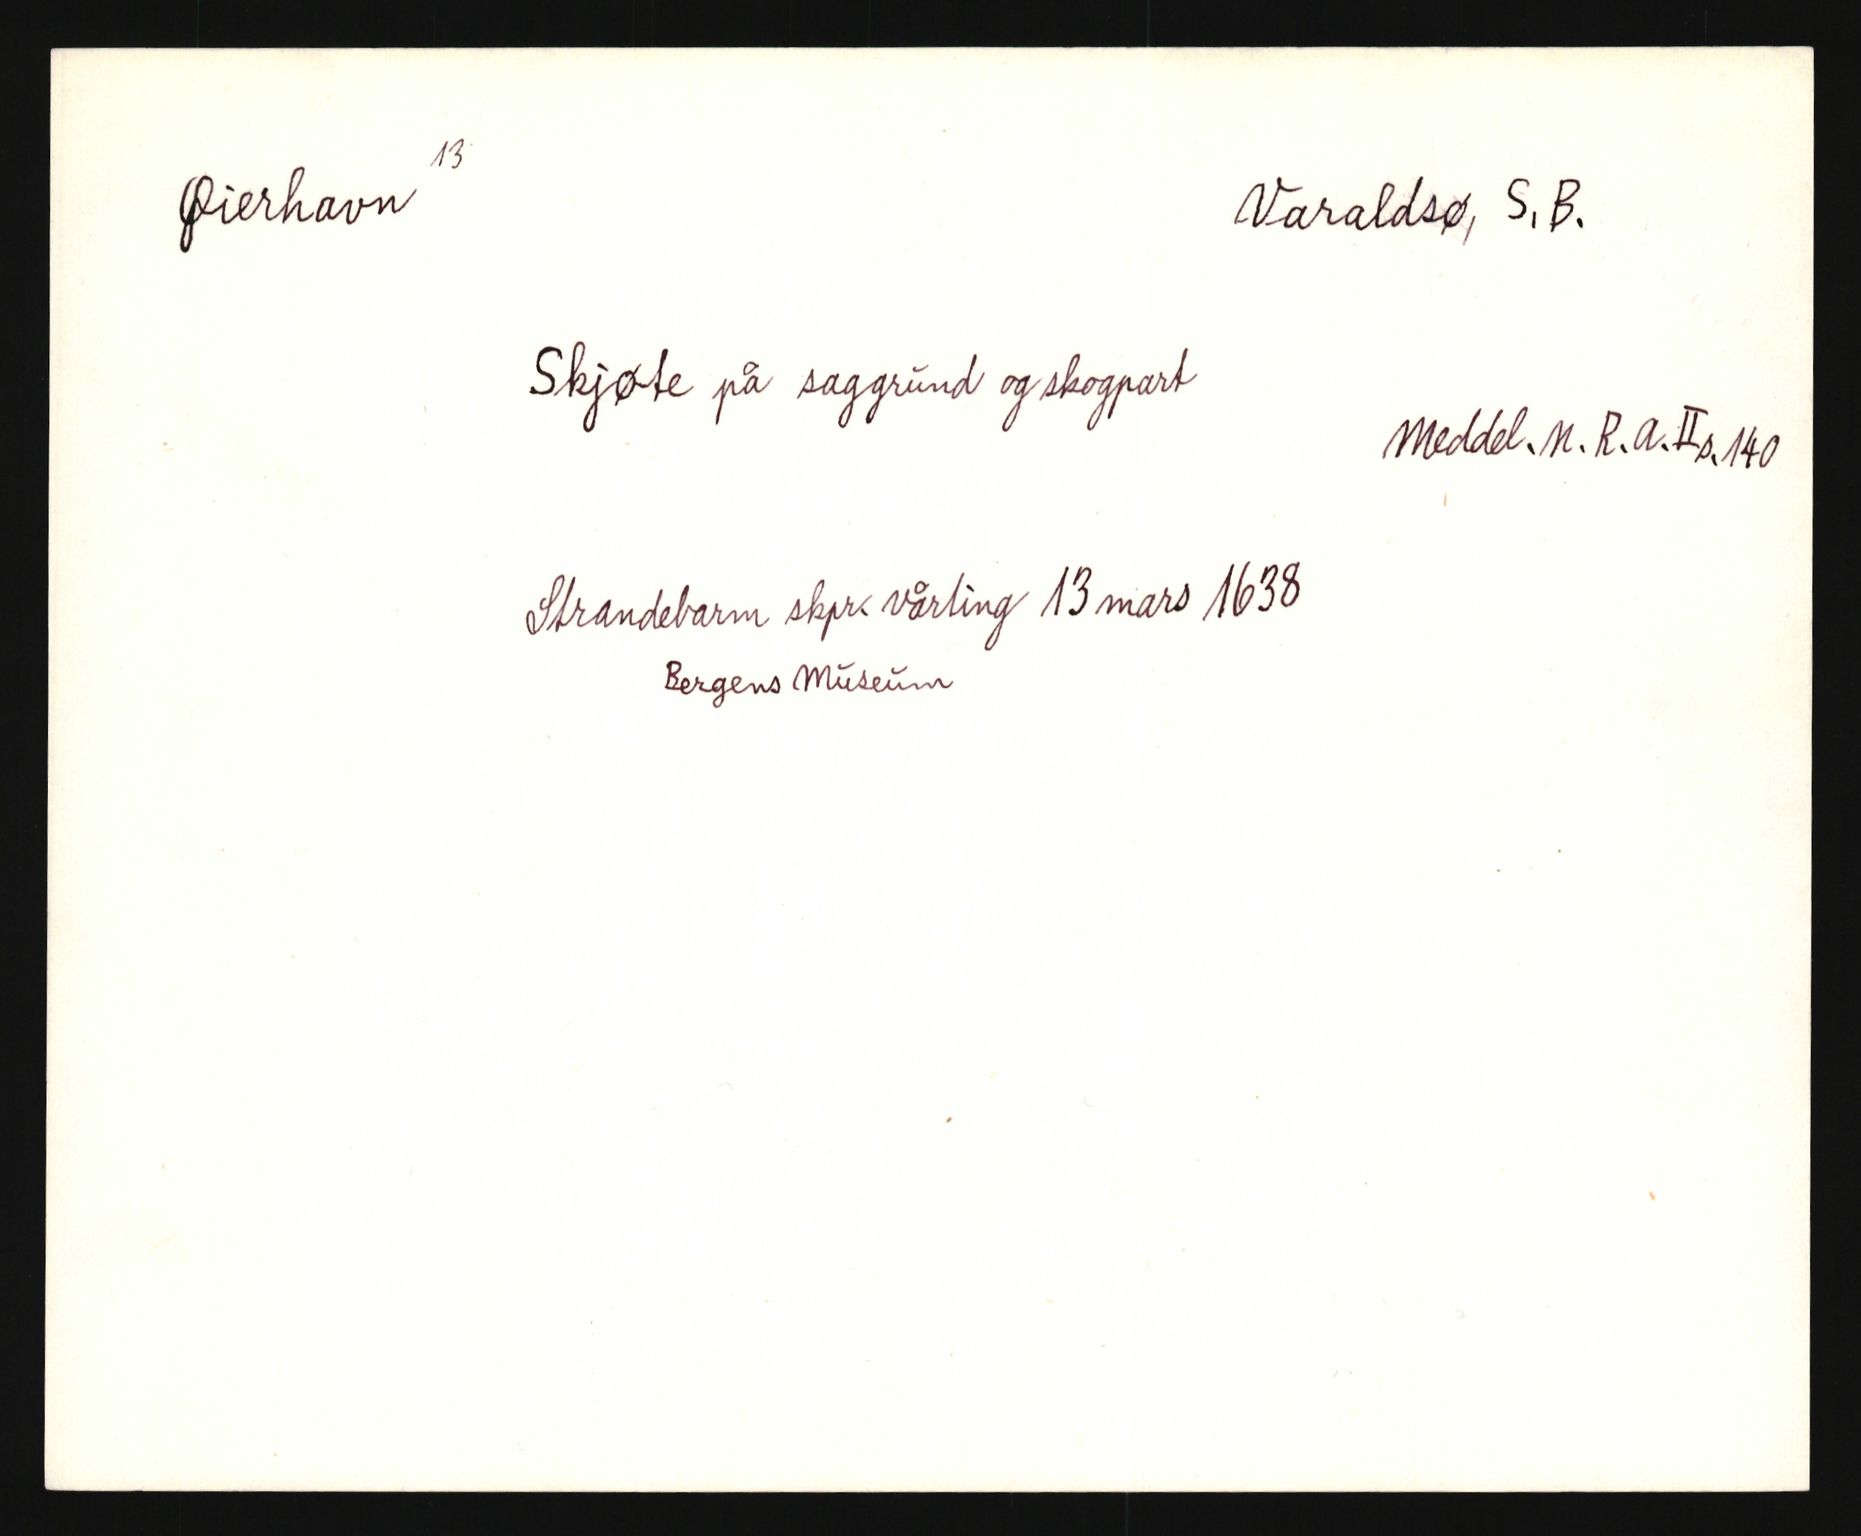 Øierhavn 13
Varaldsø, S.B.
Skjøte på saggrund og skogpart
Meddel. N. R. A. II s. 140
Strandebarm skpr. vårting 13 mars 1638
Bergens Museum